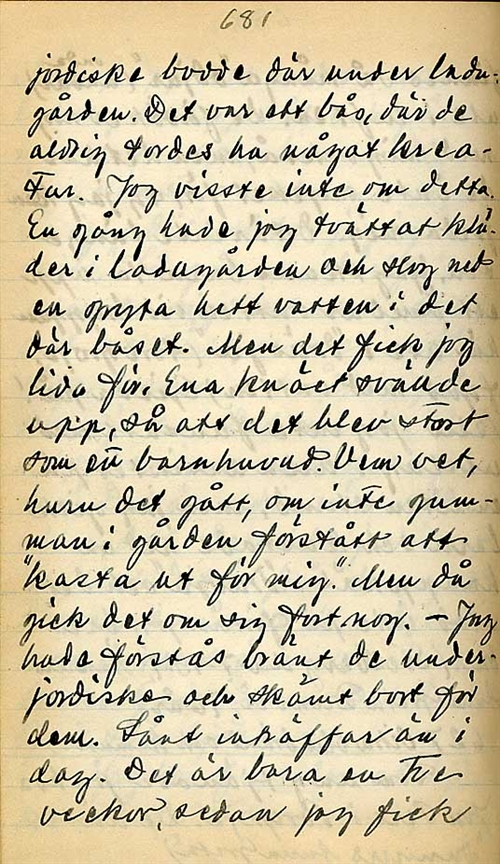 681
jordiske bodde där under ladu-
gården. Det var ett bås, där de
aldrig tordes ha något krea-
tur. Jag visste inte om detta.
En gång hade jag tvättat klä-
der i ladugården och slog ned
en gryta hett vatten i det
där båset. Men det fick jag
lida för. Ena knäet svällde
upp, så att det blev stort
som ett barnhuvud. Vem vet,
huru det gått, om inte gum-
man i gården förstått att
"kasta ut för mig". Men då
gick det om sig fort nog. – Jag
hade förstås bränt de under-
jordiske och skämt bort för
dem. Sånt inträffar än i
dag. Det är bara en tre
veckor, sedan jag fick